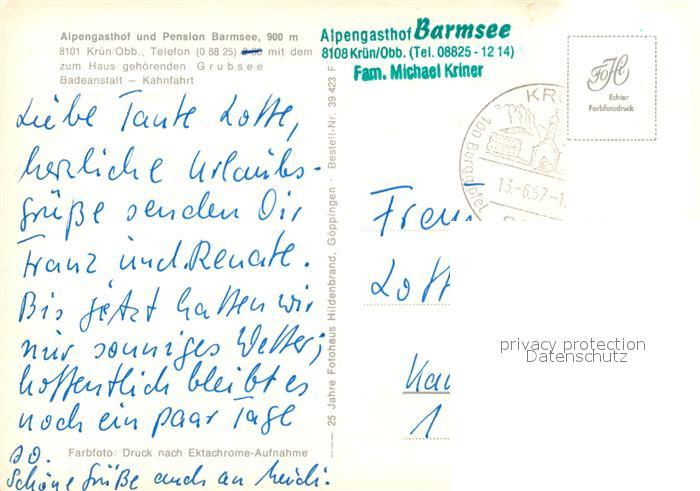 Alpengasthof und Pension Barmsee, 900 m
8101 Krün/Obb., Telefon (0 88 25) mit dem
zum Haus gehörenden Grubsee
Badeanstalt — Kahnfahrt
Liebe Tante Lotte,
herzliche Urlaubs-
grüße senden Dir
Franz und Renate.
Bis jetzt hatten wir
nur sonniges Wetter;
hoffentlich bleibt es
noch ein paar Tage
so.
Schöne Grüße auch an Heidi.
Farbfoto: Druck nach Ektachrome-Aufnahme
25 Jahre Fotohaus Hildenbrand, Göppingen · Bestell-Nr. 39 423 F
Alpengasthof Barmsee
8108 Krün/Obb. (Tel. 08825 - 12 14)
Fam. Michael Kriner
KR
100 Berggipfel
13.-6.67-1
FoHi
Echter
Farbfotodruck
Frau
Lott
1
privacy protection
Datenschutz